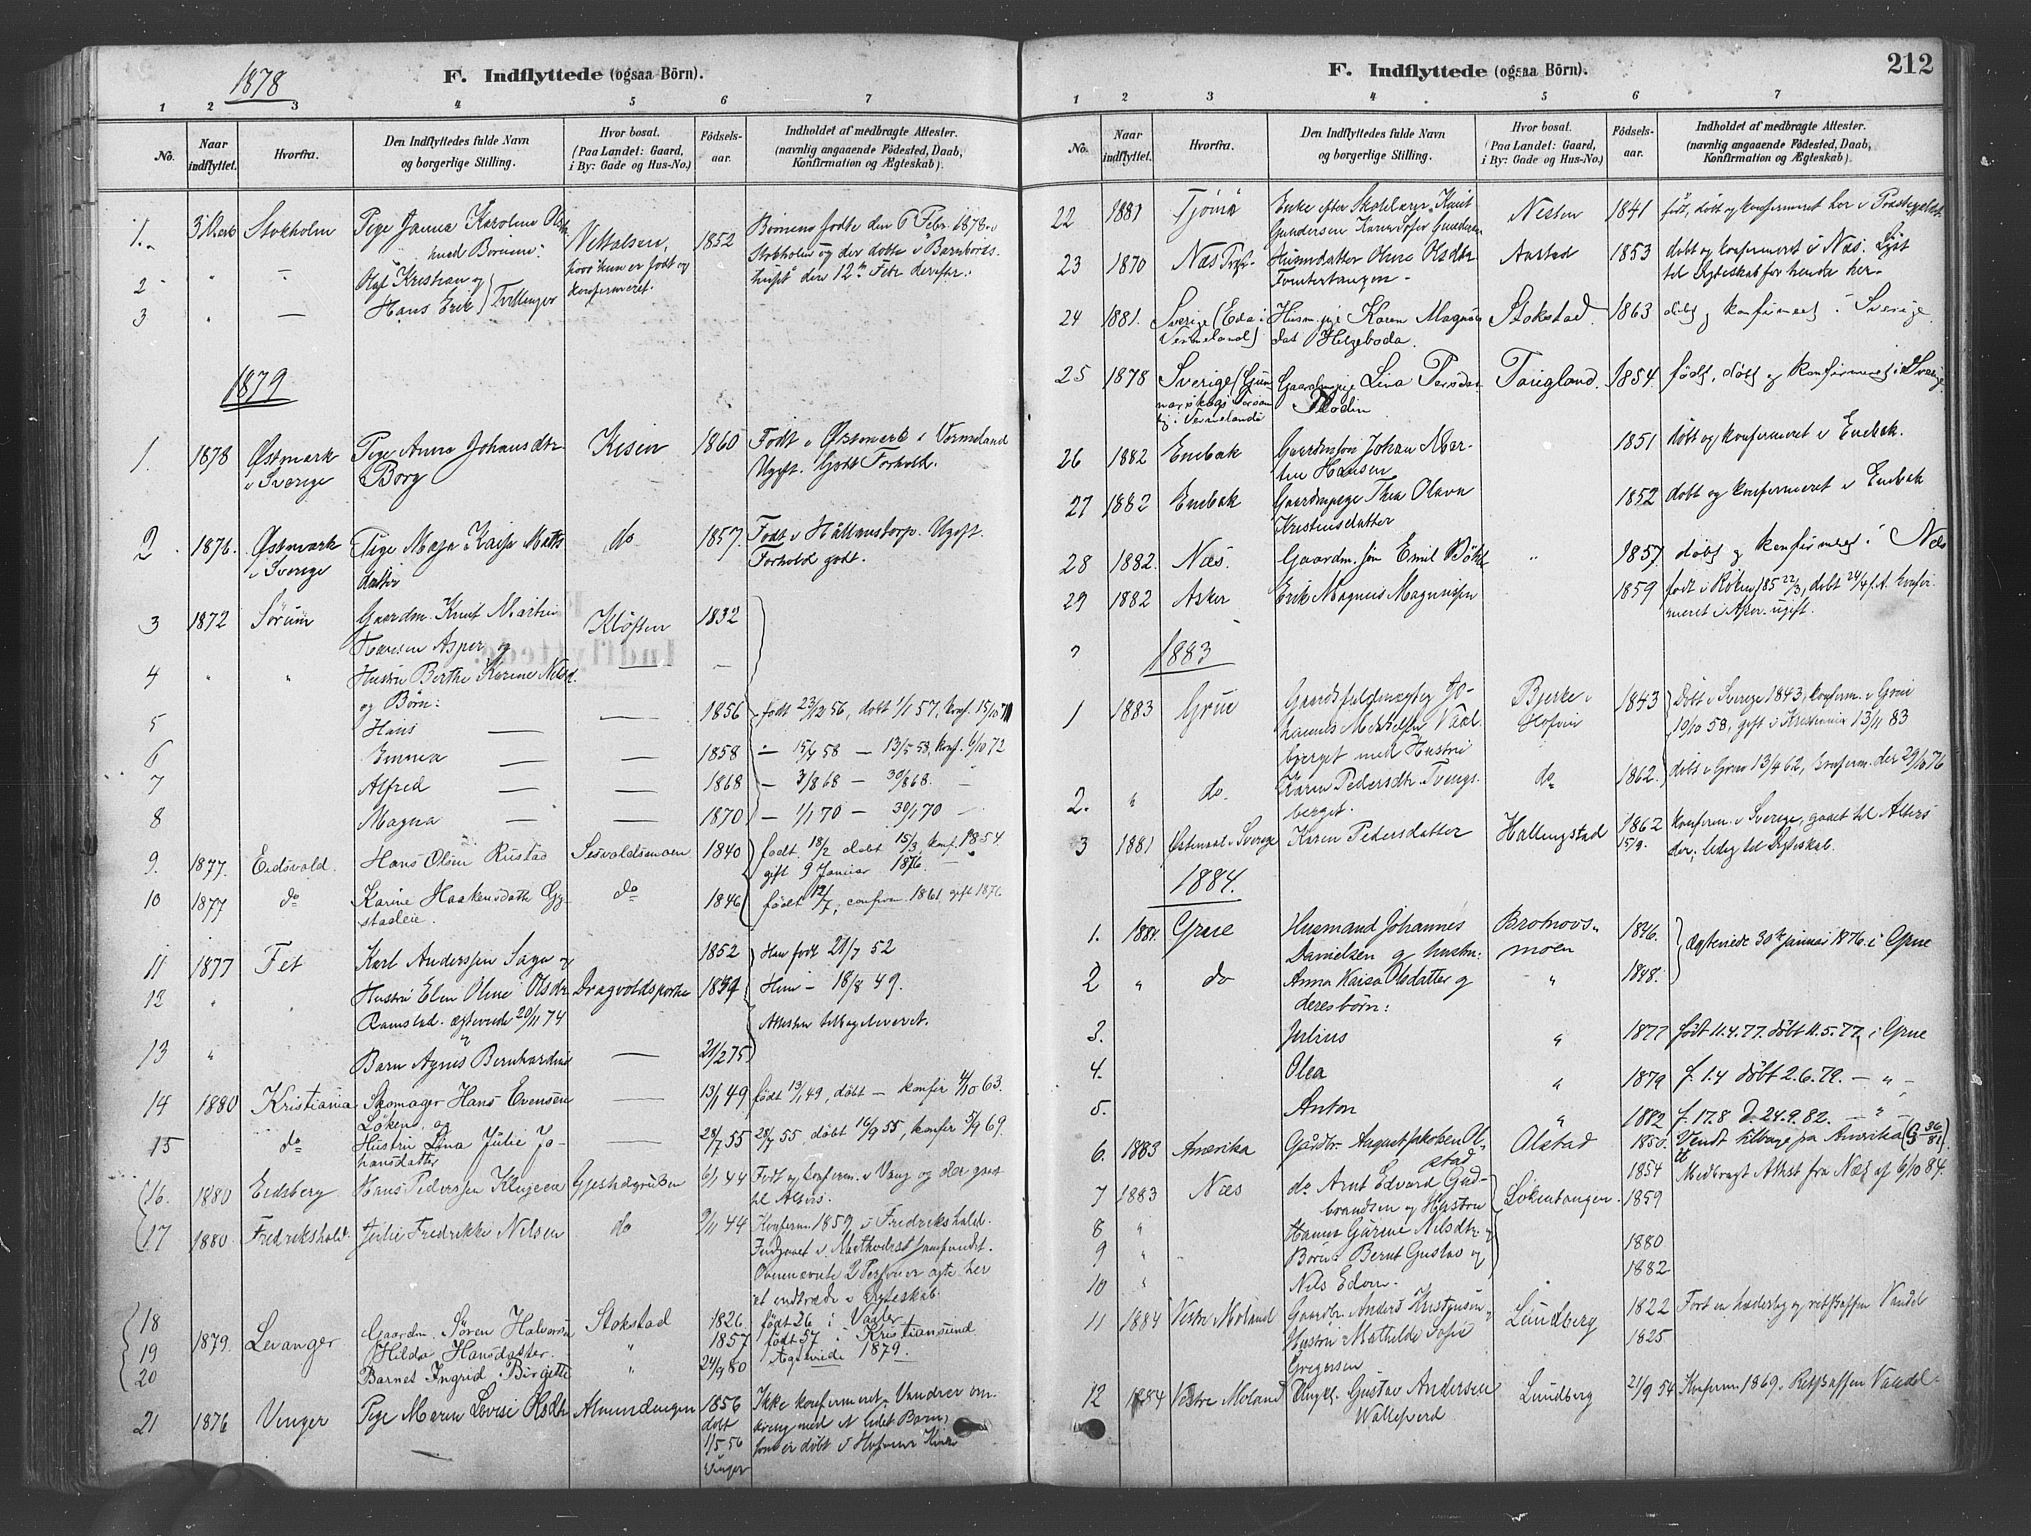 1878
F. Indflyttede (ogsaa Börn).
1 2 3 4 5 6 7
No.
Naar indflyttet.
Hvorfra.
Den Indflyttedes fulde Navn
og borgerlige Stilling.
Hvor bosat.
(Paa Landet: Gaard,
i By: Gade og Hus-No.)
Fødsels-
aar.
Indholdet af medbragte Attester.
(navnlig angaaende Fødested, Daab,
Konfirmation og Ægteskab).
1. Stokholm Pige Janna Karoline 1852 Börnene födte den 6 Febr. 1878 i
med Börnene: Stokholm og der döbte i Barnbörds-
2 " — Olaf Kristian og huset den 12te Febr derefter.
hvor hun er födt og
konfirmeret.
3 " — Hans Erik Tvillinger
1879
1. 1878 Østmark Pige Anna Johansdtr Kisen 1860 Födt i Østmark i Vermeland
i Sverige Borg Ugift. Godt Forhold.
2. 1876. Østmark Pige Maja Kaisa Matts- do 1857. Födt i Ugift.
i Sverige datter Forhold godt.
3 1872 Sørum Gaardm. Knut Martin Klöften 1832
Hansen Asper og
4 " " Hustru Berthe Karine Nilsd. — —
og Börn:
5 Hans — — 1856 födt 23/12 56, döbt 1/1 57, konf. 15/10 71
6 Emma — — 1858 — 15/4 58 — 13/5 58, konf. 6/10 72
7 Alfred — — 1868 — 3/8 68 — 30/8 68. —
8 Magna — — 1870 — 1/1 70 — 30/1 70 —
9. 1877. Eidsvold. Hans Olsen Rustad 1840 födt 18/2 döbt 15/3, konf. 1854.
gift 9 Januar 1876. —
10 1877 do Karine Haakensdatter do 1846 födt 12/7, confirm. 1861 gift 1876
11 1877 Fet Karl Anderssen Saga og 1852 Han födt 21/7 52
12 " " Hustru Elen Oline Olsdtr 1849 Hun — 18/8 49.
Ramstad. ægteviede 20/11 74 Attesten tilbageleveret.
13 " Barn Agnes Bernhardine — 21/2 75
14 1880 Kristiania Skomager Hans Evensen — 13/1 49 födt 13/1 49, döbt — konfir 4/10 63.
Løken og
15 do Hustru Lina Julie Jo- — 28/7 55 28/7 55, döbt 16/9 55, konfir 5/9 69.
hansdatter
16. 1880 Eidsberg Hans Pederssen 6/1 44 Födt og konfirm. i Vang og der gaaet
til Alters.
17 1880 Fredrikshald. Julie Fredrikke Nilsen do 9/11 44 Konfirm. 1859 i Fredrikshald.
Indgaaet i Methodistsamfundet.
Ovennævnte 2 Personer agte her
at indtræde i Ægteskab.
18 1879 Levanger Gaardm. Sören Halvorsen Stokstad 1826 födt 26 i Vaaler
19 Hilda Hansdatter. " 1857 födt 57 i Kristiansund
20 Barnet Ingrid Birgitte " 24/9 80 Ægteviede 1879.
21 1876 Vinger Pige Maren Lovise Olsdtr Almendingen 1856 Ikke konfirmeret. Vandrer om-
döbt kring med et lidet Barn,
1/5 56 som er döbt i
Vinger

F. Indflyttede (ogsaa Börn). 212
1 2 3 4 5 6 7
No.
Naar indflyttet.
Hvorfra.
Den Indflyttedes fulde Navn
og borgerlige Stilling.
Hvor bosat.
(Paa Landet: Gaard,
i By: Gade og Hus-No.)
Fødsels-
aar.
Indholdet af medbragte Attester.
(navnlig angaaende Fødested, Daab,
Konfirmation og Ægteskab).
22 1881 Tjömö Enke efter Skolelærer Knut Nesten 1841 födt, döbt og konfirmeret her i Præstegjeldet
Gundersen Karen Sofie Gundersen
23 1870 Næs Husmdatter Oline Olsdtr Aarstad 1853 döbt og konfirmeret i Næs. Lyst
Tomtertangen — til Ægteskab for hende her.
24 1881. Sverige (Eda i Husm.pige Karen Magnus- Stokstad. 1863 döbt og konfirmeret i Sverige.
Vermeland) dat Helgeboda.
25 1878 Sverige (Gun- Gaardmpige Lina Persdat Taugland. 1854. födt, döbt og konfirmeret i Sverige
narskog
i Vermeland)
26 1882 Enebak Gaardmsön Johan Mar- 1851 döbt og konfirmeret i Enebak.
tin Hansen
27 1882 Enebak Gaardmpige Thea Olava 1852 döbt og konfirmeret i Enebak
Kristiansdatter
28 1882. Næs. Gaardm. sön Emil " 1857 döbt og konfirmeret i Næs
29 1882 Asker Erik Magnus Magnussen 1859 födt i Röken 185 22/3, döbt 24/4 s.A. konfir-
meret i Asker. ugift.
1883
1 1883 Grue Jo- Bjerke i 1843 Döbt i Sverige 1843, konfirm. i Grue
hannes Mikkelsen Vaal- Hofvin 10/10 58, gift i Kristiania 13/11 83
berget med Hustru
2. " do. Karen Pedersdtr Tvengs- do 1862. döbt i Grue 13/4 62, konfirm. der 29/10 76
berget.
3 1881 Østmark i Sverige Karen Pedersdatter Hallingstad 1862 konfirm. i Sverige, gaaet til Alters
15/9. der; ledig til Ægteskab.
1884.
1. 1881. Grue Husmand Johannes Brotnovs- 1846. Ægteviede 30te januar 1876 i Grue
Danielsen og hustru: moen
2 " do Anna Kaisa Olsdatter og " 1848.
deres börn:
3. Julius " 1877 födt 11.4.77. döbt 11.5.77. i Grue
4. Olea " 1879 f. 1.4 döbt 2.6.79. — " —
5. Anton " 1882 f. 17.8 d. 24.9.82. — " —
6. 1883 Amerika Gårdbr. August Jakobsen Al- Alstad 1850. Vendt tilbage fra Amerika
stad
7 1883 Næs do Arnt Edvard Gud- Løkentangen 1854 Medbragt Attest fra Næs af 6/10 84.
brandsen og Hustru 1859
8 " Hanna Gurine Nilsdtr og
9 " Börn: Bernt Gustav og 1880
10 " Nils Edvin. 1882
11 1884 Vestre Moland Gaardbr. Anders Lundberg 1822 Fört en hæderlig og retskaffen Vandel
Hustru Mathilde Sofie 1825
Gregersen
12 1884 Vestre Moland Ungkl. Gustav Andersen Lundberg 21/9 54 Konfirm 1869. Retskaffen Vandel.